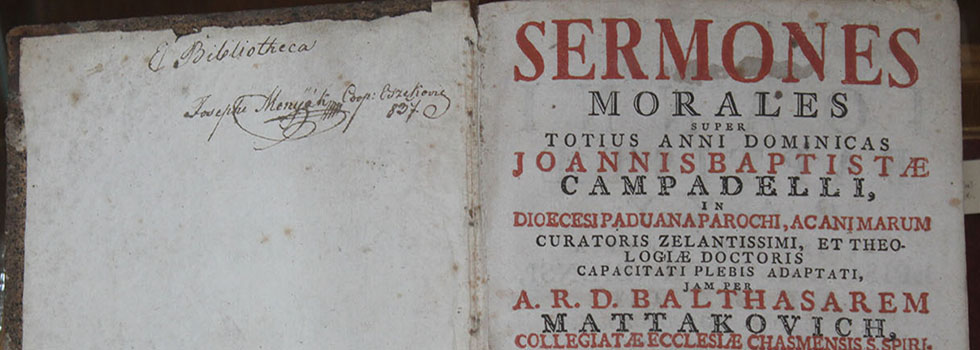 E Bibliotheca
Josephi Menyák Coop: Eszekovie
837.
SERMONES
MORALES
SUPER
TOTIUS ANNI DOMINICAS
JOANNIS BAPTISTÆ
CAMPADELLI,
IN
DIOECESI PADUANA PAROCHI, AC ANIMARUM
CURATORIS ZELANTISSIMI, ET THEO-
LOGIÆ DOCTORIS
CAPACITATI PLEBIS ADAPTATI,
JAM PER
A. R. D. BALTHASAREM
MATTAKOVICH,
COLLEGIATÆ ECCLESIÆ CHASMENSIS S. SPIRI-